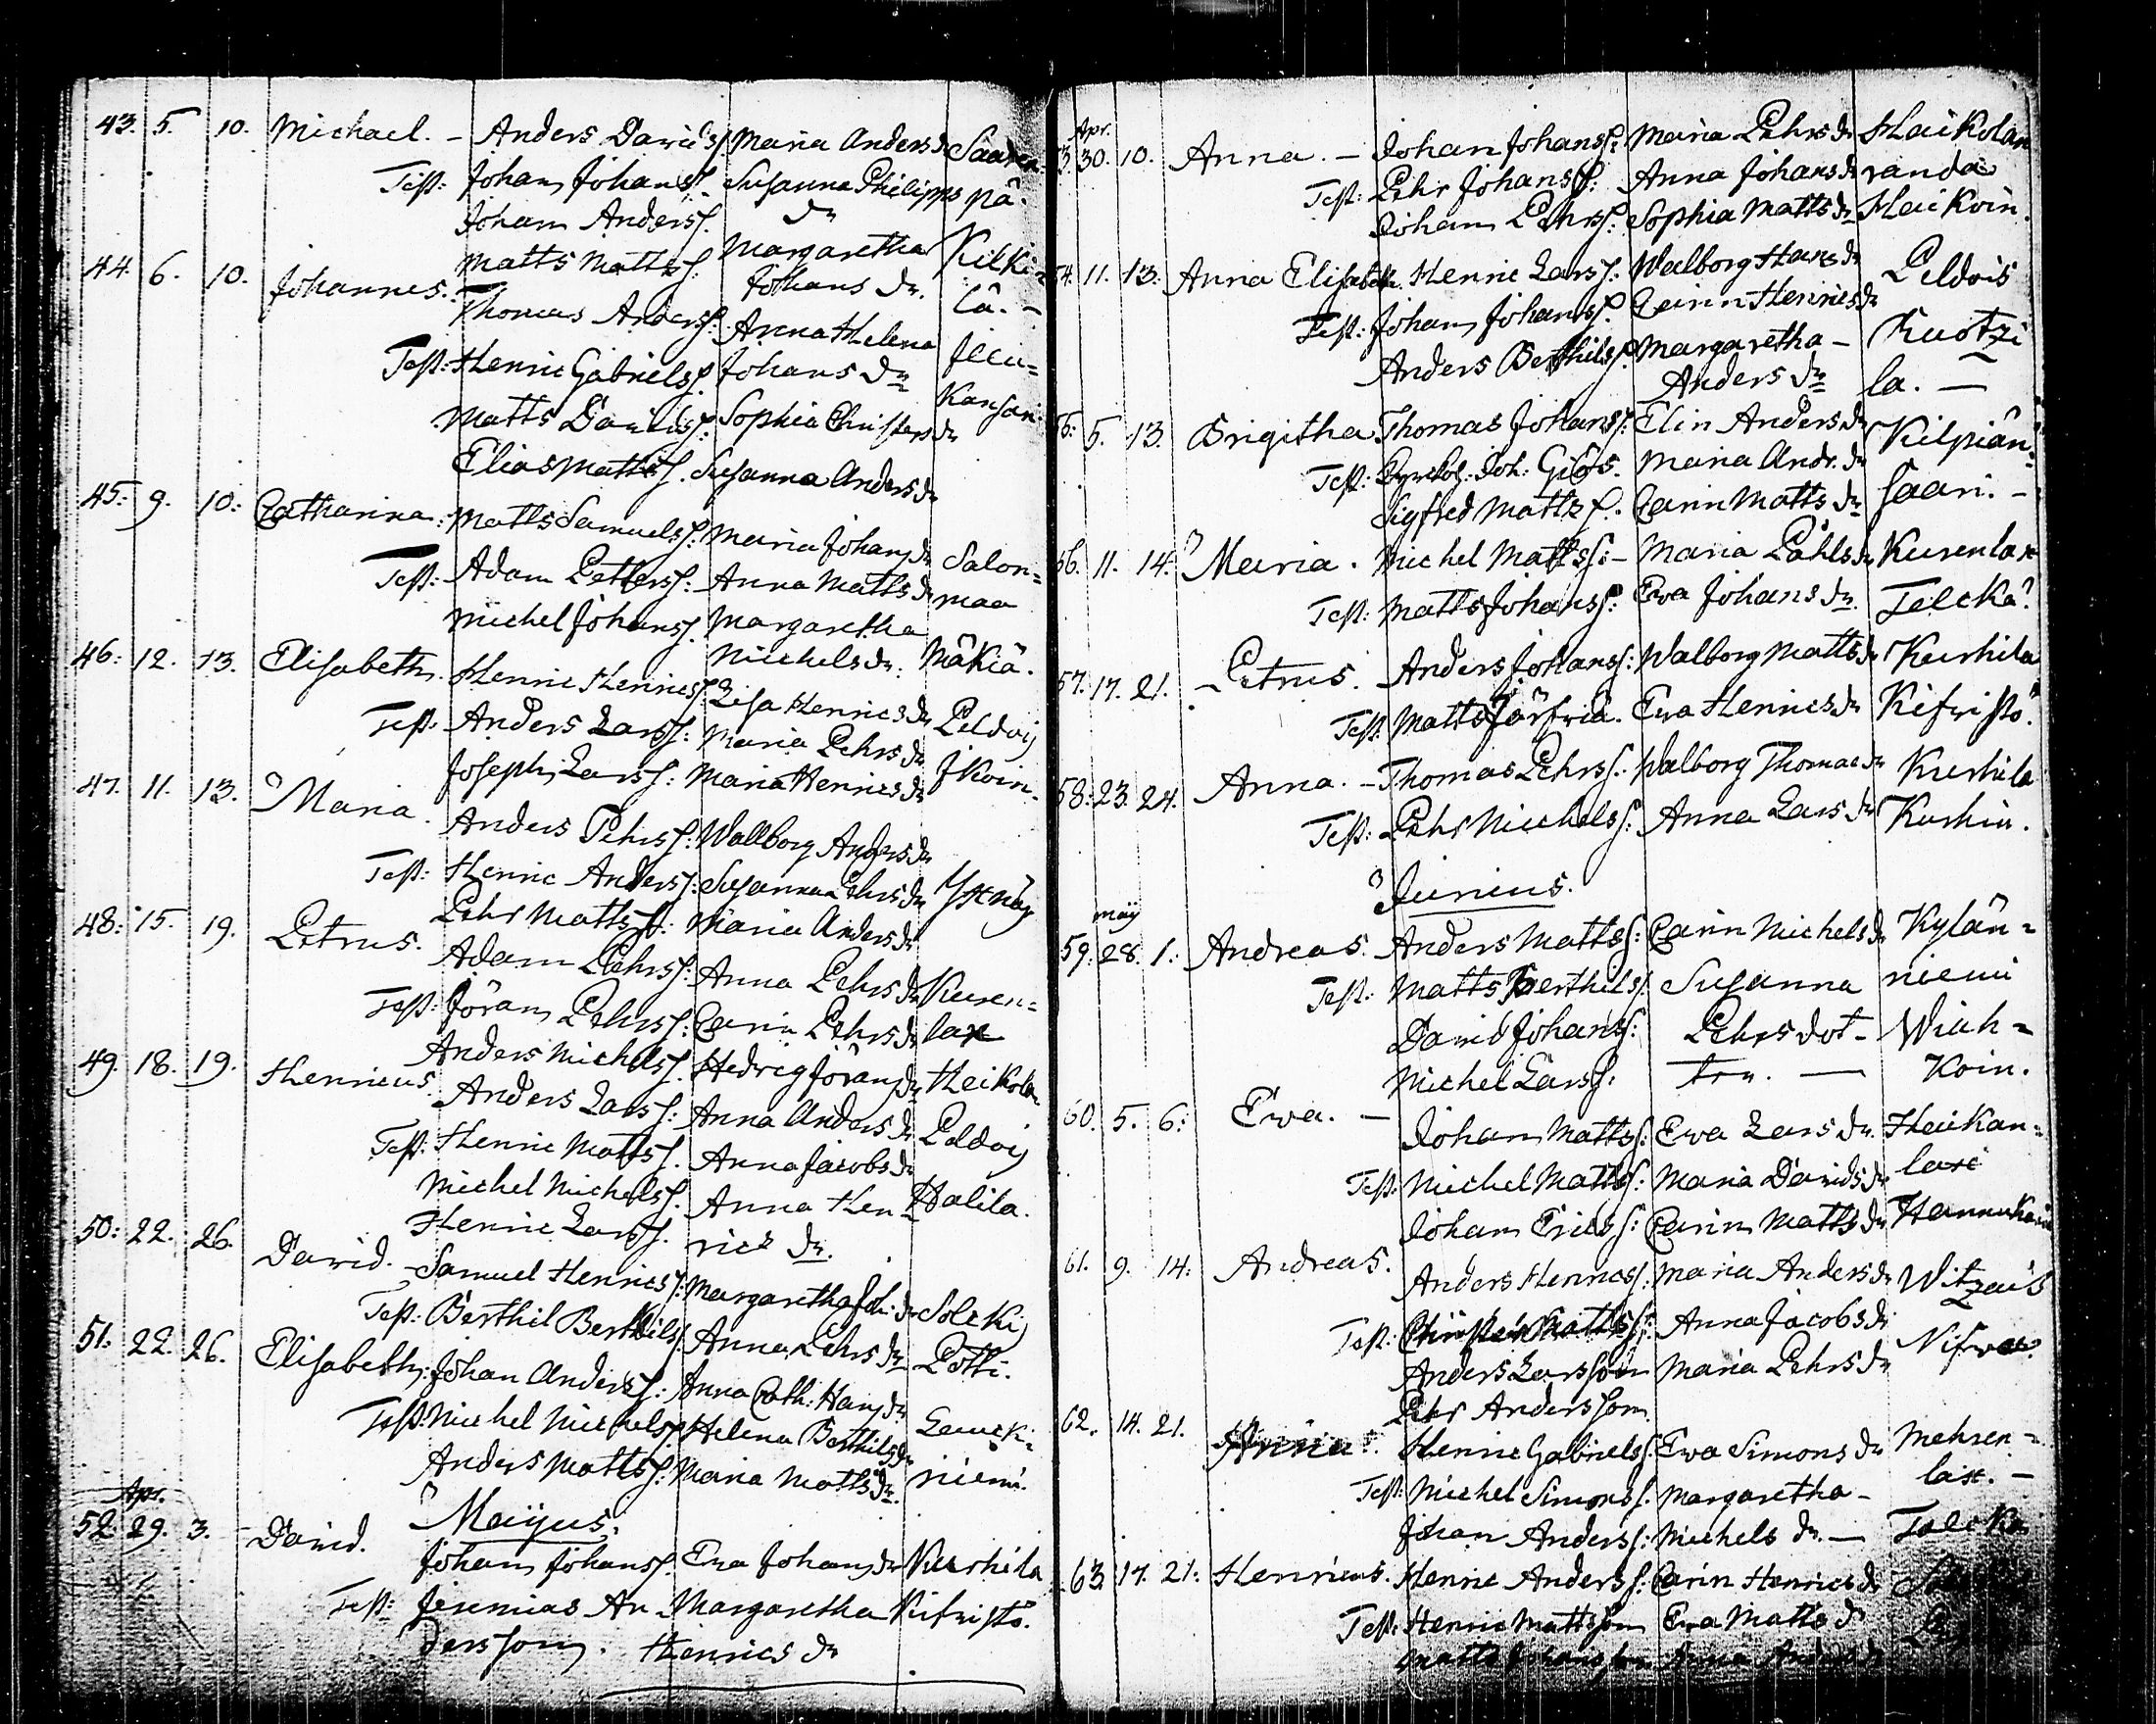 43. 5. 10. Michael. - Anders Davidsf. Maria Andersdr Saaren=
Test: Johan Johansf. Susanna Philipps pä.
Johan Andersf. dr
44. 6. 10. Johannes. Matts Mattsf. Margaretha Kilki=
Thomas Andersf. Johans dr. lä. -
Test: Henric Gabrielsf. Anna Helena
Matts Davidsf. Johans dr
Elias Mattsf. Sophia Christersdr
Susanna Andersdr
45: 9. 10: Catharina. Matts Samuelsf. Maria Johansdr Salon=
Test: Adam Pettersf: Anna Mattsdr maa
Michel Johansf. Margaretha
Michelsdr. Mäkiä.
46: 12. 13. Elisabeth. Henric Henricsf. Lisa Henricsdr Peldoij
Test: Anders Larsf: Maria Pehrsdr
Joseph Larsf: Maria Henricsdr
47. 11. 13. Maria. Anders Pehrsf: Wallborg Andersdr
Test: Henric Andersf: Susanna Pehrsdr
Pehr Mattsf: Maria Andersdr
48: 15. 19. Petrus. Adam Pehrsf: Anna Pehrsdr Kuren=
Test: Jöran Pehrsf: Carin Pehrsdr lax
Anders Michelsf. Hedvig Jöransdr Heikola
49. 18. 19. Henricus. Anders Larsf: Anna Andersdr Peldoij
Test: Henric Mattsf. Anna Jacobsdr
Michel Michelsf. Anna Hen= Halila.
Henric Larsf. rics dr.
50: 22. 26. David. - Samuel Henricsf: Margaretha Joh: dr Solcki
Test: Berthil Berthilsf. Anna Pehrsdr Potti.
51: 22. 26. Elisabeth. Johan Andersf: Anna Cath: Hansdr
Test: Michel Michelsf. Helena Berthilsdr
Anders Mattsf: Maria Mattsdr. niemi.
Majus.
Apr.
52. 29. 3. - David. Johan Johansf. Eva Johansdr Kurhila
Test: Jeremias An= Margaretha Kifristö.
dersson. Henrics dr
Apr.
53. 30. 10. Anna. - Johan Johansf: Maria Pehrsdr Haikolan
Test: Pehr Johansf: Anna Johansdr randa
Johan Pehrsf: Sophia Mattsdr Haikoin.
54. 11. 13: Anna Elisabeth. Henric Larsf: Walborg Hansdr Peldois
Test: Johan Johansf. Carin Henricsdr Kuotzi
Anders Berthilsf. Margaretha - la. -
Anders dr
55: 5. 13. Brigitha Thomas Johansf: Elin Andersdr Kilpiän=
Test: Joh: Maria Andr. dr saari. -
Sigfred Matts f. Carin Matts dr
56. 11. 14: Maria. Michel Mattsf: - Maria Påhlsdr Kurenlax
Test: Matts Johansf: Eva Johansdr. Telckä.
57. 17. 21. - Petrus. Anders Johansf: Walborg Mattsdr Kurhila
Test: Matts Eva Henricsdr Kifristö.
58: 23. 24. Anna. - Thomas Pehrsf. Walborg Thomaedr Kurhila
Test: Pehr Michelsf: Anna Larsdr
Junius.
may
59. 28. 1. Andreas. Anders Mattsf: Carin Michelsdr Kylän=
Test: Matts Berthilsf. Susanna niemi
David Johansf: Pehrsdot= Wiah=
Michel Larsf: ter. - Koin.
60. 5. 6: Ewa. - Johan Mattsf: Ewa Larsdr. Haikan=
Test: Michel Mattsf: Maria Davidsdr laxi
Johan Ericsf: Carin Mattsdr
61. 9. 14: Andreas. Anders Henricsf. Maria Andersdr
Test: Mattsf: Anna Jacobsdr
Anders Larsson Maria Pehrsdr
Pehr Andersson
62. 14. 21. Henric Gabrielsf. Ewa Simonsdr Mehren=
Test: Michel Simonsf. Margaretha - lax. -
Johan Andersf: Michels dr. -
63. 17. 21: Henricus. Henric Andersf: Carin Henricsdr
Test: Henric Mattsson Eva Mattsdr
Matts Johansson Anna Andersdr